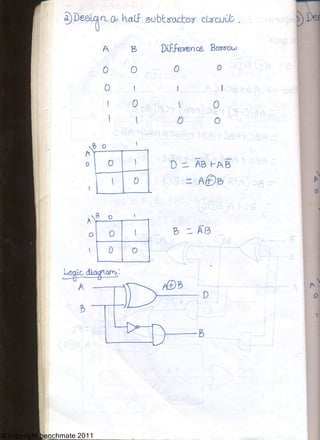 2) Design a half subtractor circuit.
A B Difference Borrow
0 0 0 0
0 1 1 1
1 0 1 0
1 1 0 0
A\B 0 1
0 0 1
1 1 0
D = A̅B + AB̅
= A⊕B
A\B 0 1
0 0 1
1 0 0
B = A̅B
Logic diagram:
A A⊕B
D
B
B
© copyright benchmate 2011